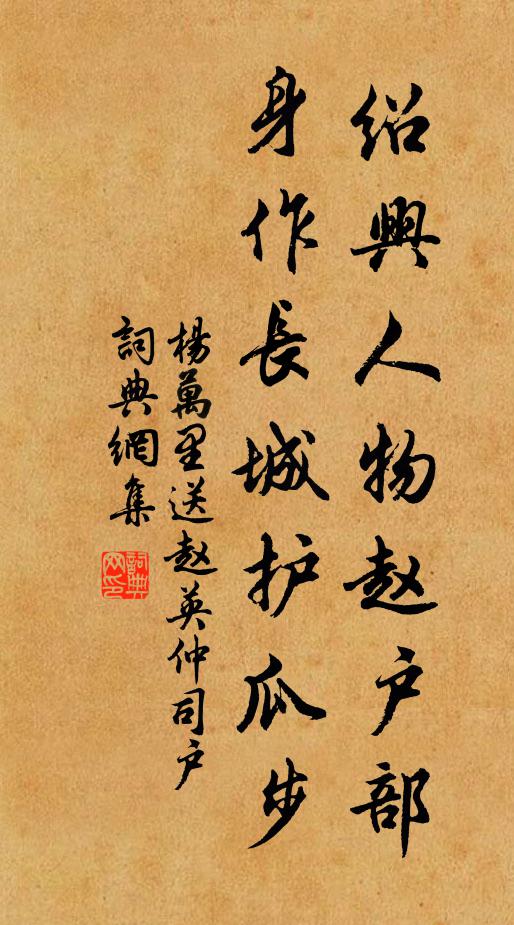 绍興人物赵户部
身作長城护瓜步
楊萬里送赵英仲司户
詞典網集
詞典网印